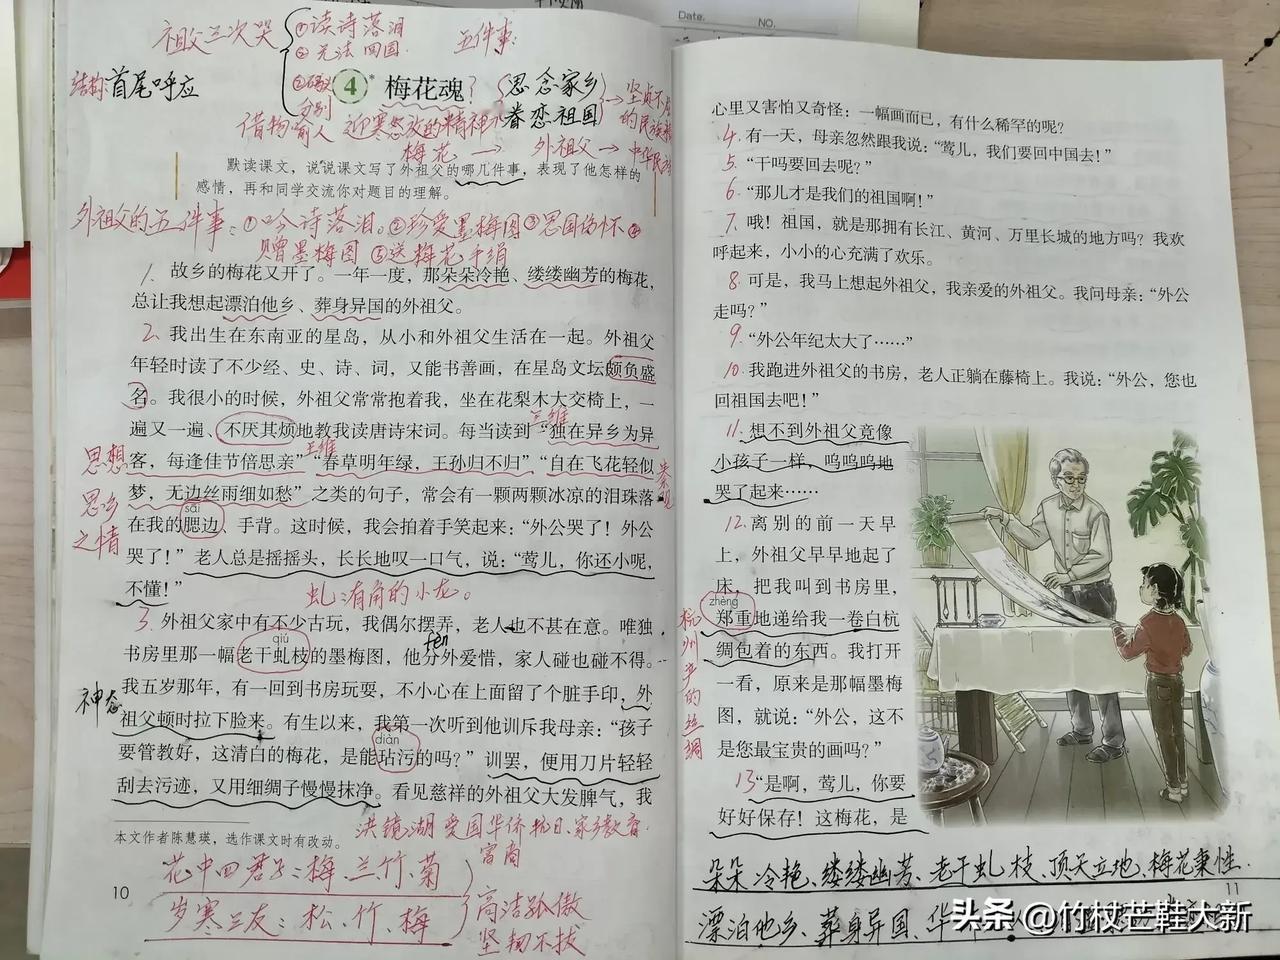 Date.
NO.
祖父三次哭
①读诗落泪
②无法回国
分别
五件事
结构:首尾呼应
4* 梅花魂
思念家乡
眷恋祖国
借物喻人
梅花 → 外祖父 →
默读课文,说说课文写了外祖父的哪几件事,表现了他怎样的
感情,再和同学交流你对题目的理解。
外祖父的五件事:①吟诗落泪。②珍爱墨梅图③思国伤怀④
赠墨梅图⑤送梅花手绢
1. 故乡的梅花又开了。一年一度,那朵朵冷艳、缕缕幽芳的梅花,
总让我想起漂泊他乡、葬身异国的外祖父。
2. 我出生在东南亚的星岛,从小和外祖父生活在一起。外祖父
年轻时读了不少经、史、诗、词,又能书善画,在星岛文坛颇负盛
名。我很小的时候,外祖父常常抱着我,坐在花梨木大交椅上,一
王维
遍又一遍、不厌其烦地教我读唐诗宋词。每当读到“独在异乡为异
王维
客,每逢佳节倍思亲”“春草明年绿,王孙归不归”“自在飞花轻似
秦观
梦,无边丝雨细如愁”之类的句子,常会有一颗两颗冰凉的泪珠落
思想
思乡
之情
sāi
在我的腮边、手背。这时候,我会拍着手笑起来:“外公哭了!外公
哭了!”老人总是摇摇头,长长地叹一口气,说:“莺儿,你还小呢,
不懂!”
虬:有角的小龙。
3. 外祖父家中有不少古玩,我偶尔摆弄,老人也不甚在意。唯独
qiú
fèn
书房里那一幅老干虬枝的墨梅图,他分外爱惜,家人碰也碰不得。
我五岁那年,有一回到书房玩耍,不小心在上面留了个脏手印,外
神态
祖父顿时拉下脸来。有生以来,我第一次听到他训斥我母亲:“孩子
diàn
要管教好,这清白的梅花,是能玷污的吗?”训罢,便用刀片轻轻
刮去污迹,又用细绸子慢慢抹净。看见慈祥的外祖父大发脾气,我
本文作者陈慧瑛,选作课文时有改动。
洪镜湖 爱国华侨 抗日、家乡教育
富商
花中四君子:梅、兰、竹、菊
岁寒三友:松、竹、梅
高洁孤傲
坚韧不拔
10
心里又害怕又奇怪:一幅画而已,有什么稀罕的呢?
4. 有一天,母亲忽然跟我说:“莺儿,我们要回中国去!”
5. “干吗要回去呢?”
6. “那儿才是我们的祖国啊!”
7. 哦!祖国,就是那拥有长江、黄河、万里长城的地方吗?我欢
呼起来,小小的心充满了欢乐。
8. 可是,我马上想起外祖父,我亲爱的外祖父。我问母亲:“外公
走吗?”
9. “外公年纪太大了……”
10. 我跑进外祖父的书房,老人正躺在藤椅上。我说:“外公,您也
回祖国去吧!”
11. 想不到外祖父竟像
小孩子一样,呜呜呜地
哭了起来……
12. 离别的前一天早
上,外祖父早早地起了
床,把我叫到书房里,
zhèng
郑重地递给我一卷白杭
绸包着的东西。我打开
杭州产的丝绸
一看,原来是那幅墨梅
图,就说:“外公,这不
是您最宝贵的画吗?”
13 “是啊,莺儿,你要
好好保存!这梅花,是
朵朵冷艳、缕缕幽芳、老干虬枝、顶天立地、梅花秉性.
11
漂泊他乡、葬身异国、华
头条 @竹杖芒鞋大新